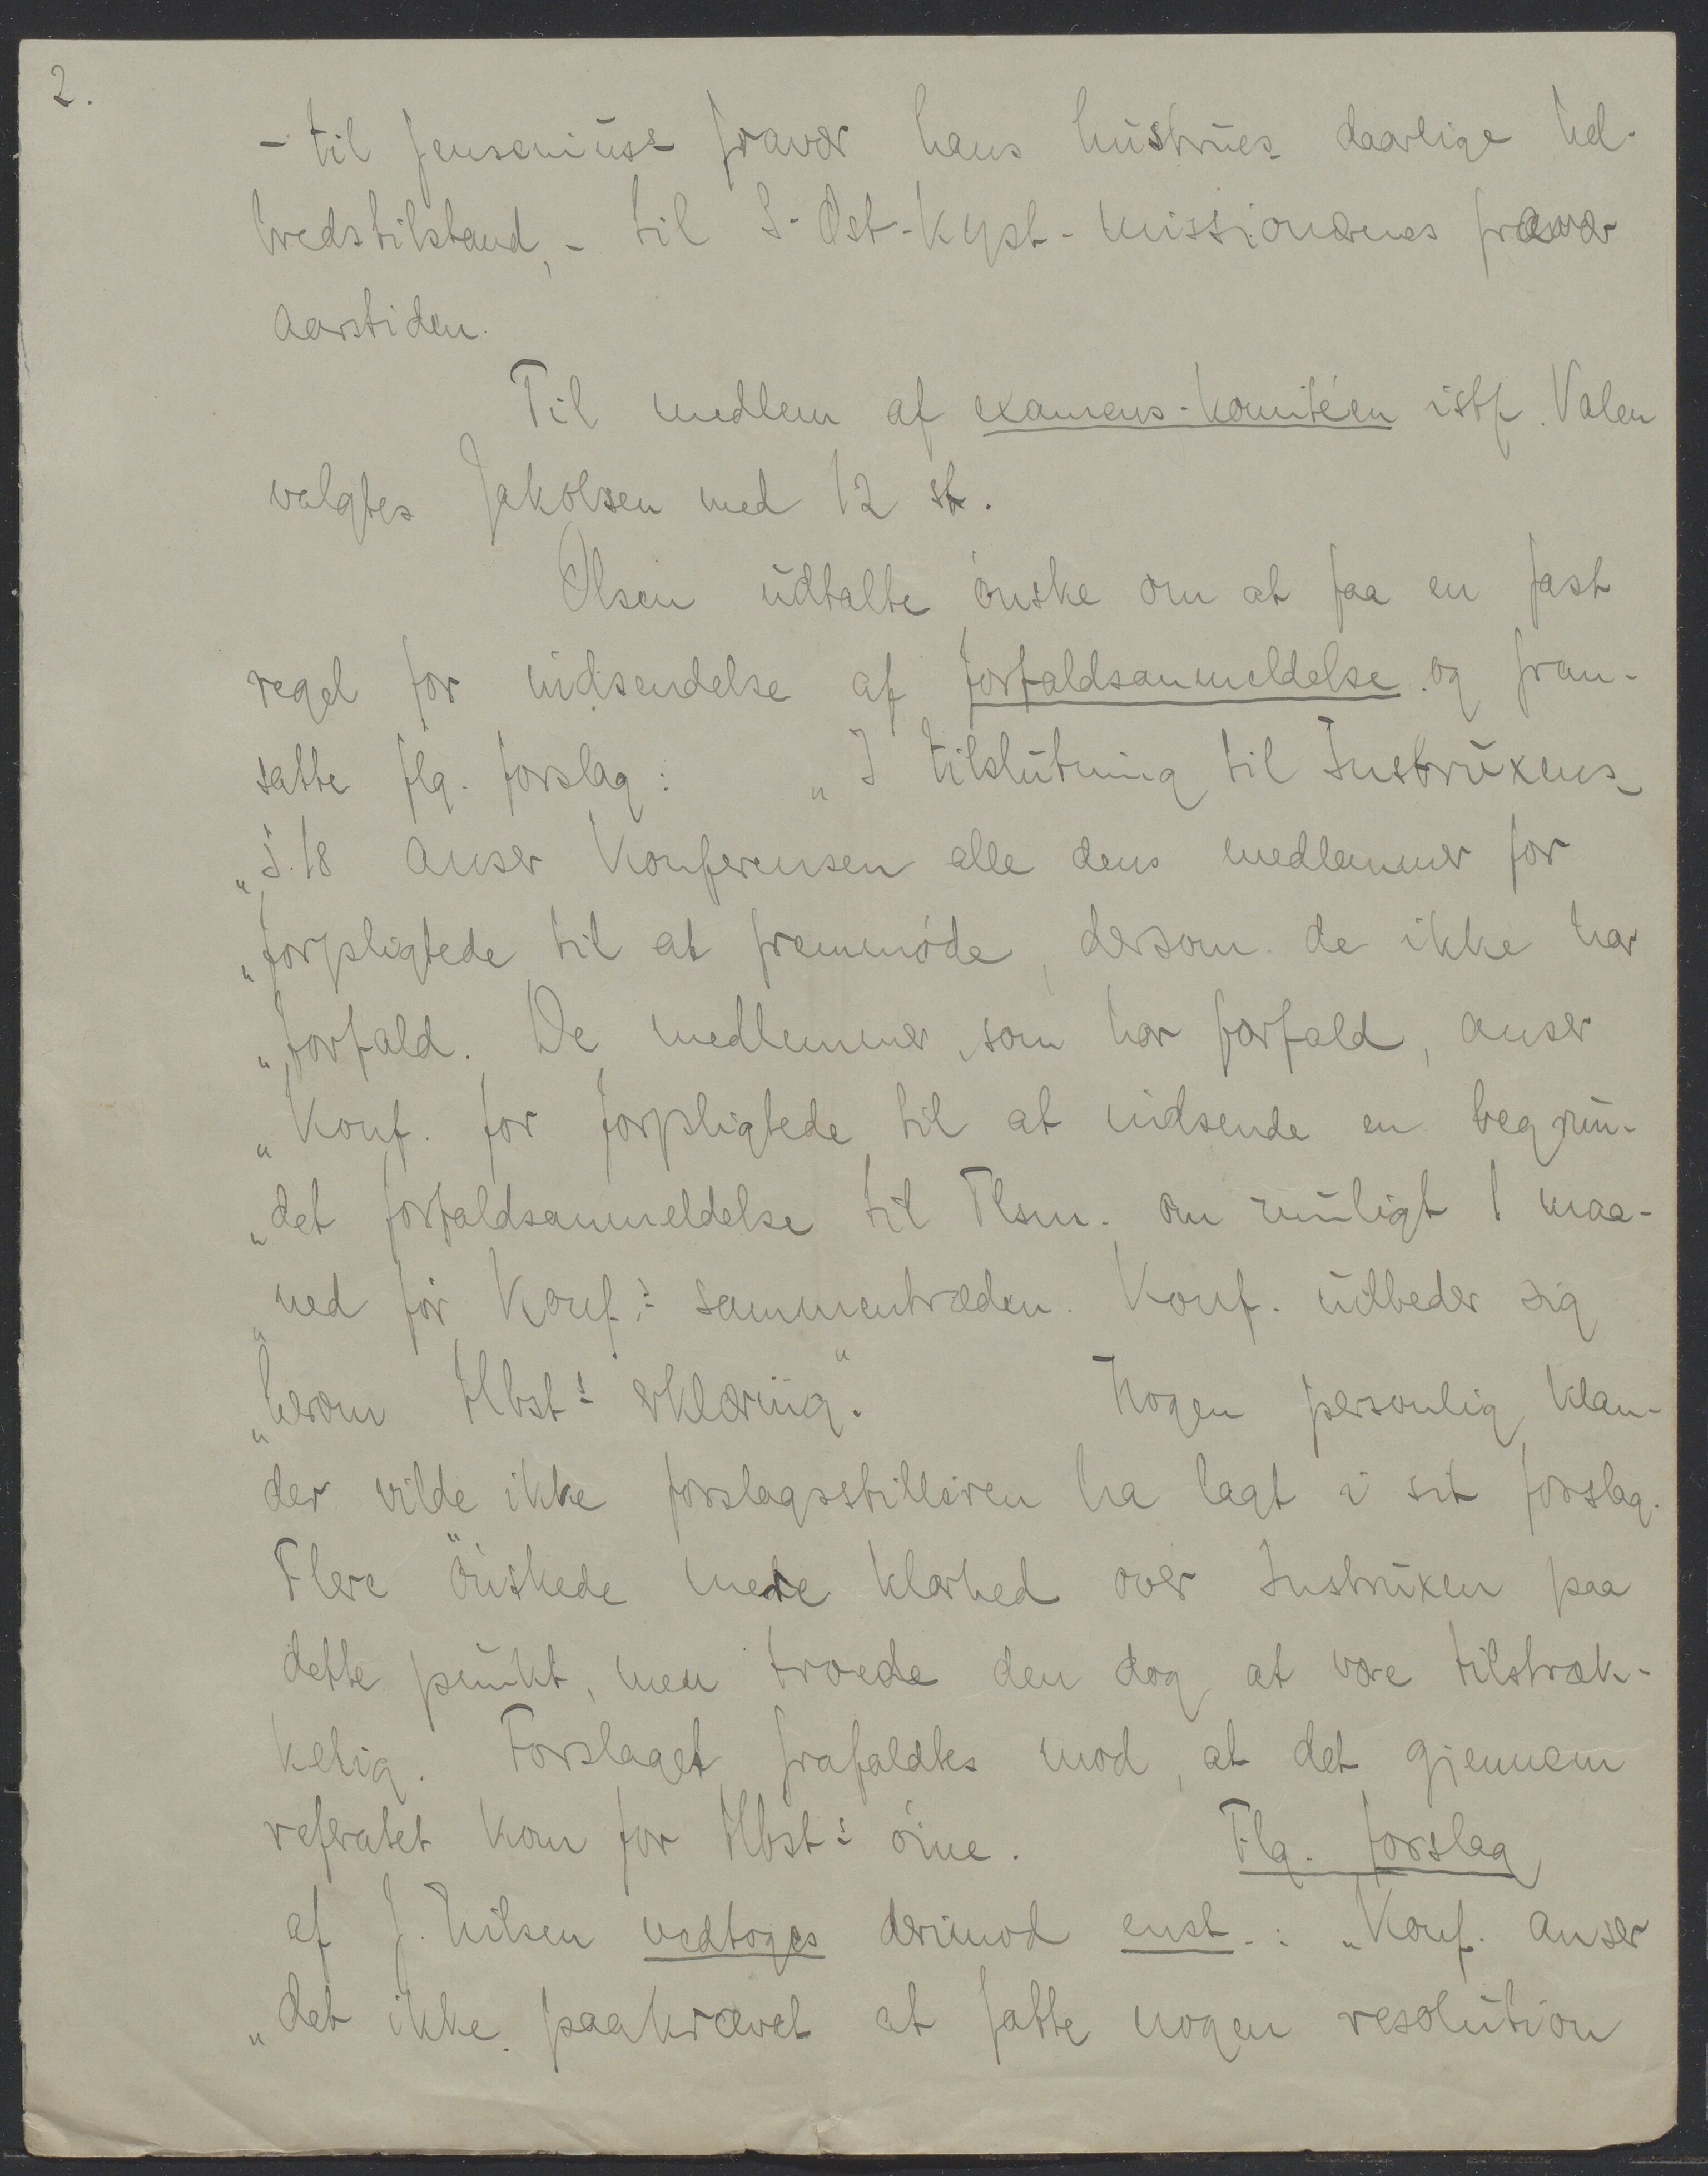 2.
- til Jenseniuss fravær hans hustrues daarlige hel-
bredstilstand, - til S-Øst-Kyst-missionærnes fravær
aarstiden.
Til medlem af examens-komitéen istf. Valen
valgtes Jakobsen med 12 st.
Olsen udtalte ønske om at faa en fast
regel for indsendelse af forfaldsanmeldelse og frem-
satte flg. forslag: „I tilslutning til Instruxens
„§.18 anser Konferensen alle dens medlemmer for
„forpligtede til at fremmøde, dersom de ikke har
„forfald. De medlemmer, som har forfald, anser
„Konf. for forpligtede til at indsende en begrun-
„det forfaldsanmeldelse til Tlsm. om muligt 1 maa-
„ned før Konf.s sammentræden. Konf. udbeder sig
„herom Hbst.s erklæring“. Nogen personlig klan-
der vilde ikke forslagsstilleren ha lagt i sit forslag.
Flere ønskede mere klarhed over Instruxen paa
dette punkt, men troede den dog at være tilstræk-
kelig. Forslaget frafaldtes mod, at det gjennem
referatet kom for Hbst.s øine. Flg. forslag
af J. Nilsen vedtoges derimod enst.: „Konf. anser
„det ikke paakrævet at fatte nogen resolution